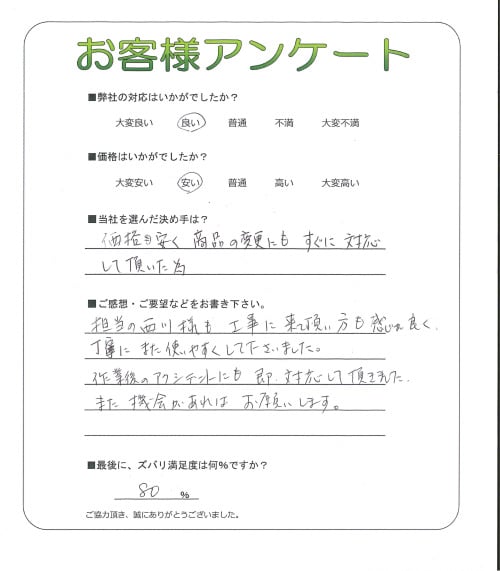 お客様アンケート
■弊社の対応はいかがでしたか？
大変良い 良い 普通 不満 大変不満
■価格はいかがでしたか？
大変安い 安い 普通 高い 大変高い
■当社を選んだ決め手は？
価格も安く 商品の変更にも すぐに 対応
して頂いた為
■ご感想・ご要望などをお書き下さい。
担当の西川様も 工事に来て頂い方も 感じが良く、
丁寧に また 使いやすくして下さいました。
作業後のアクシデントにも 即、対応して頂きました。
また 機会があれば お願いします。
■最後に、ズバリ満足度は何％ですか？
80 %
ご協力頂き、誠にありがとうございました。